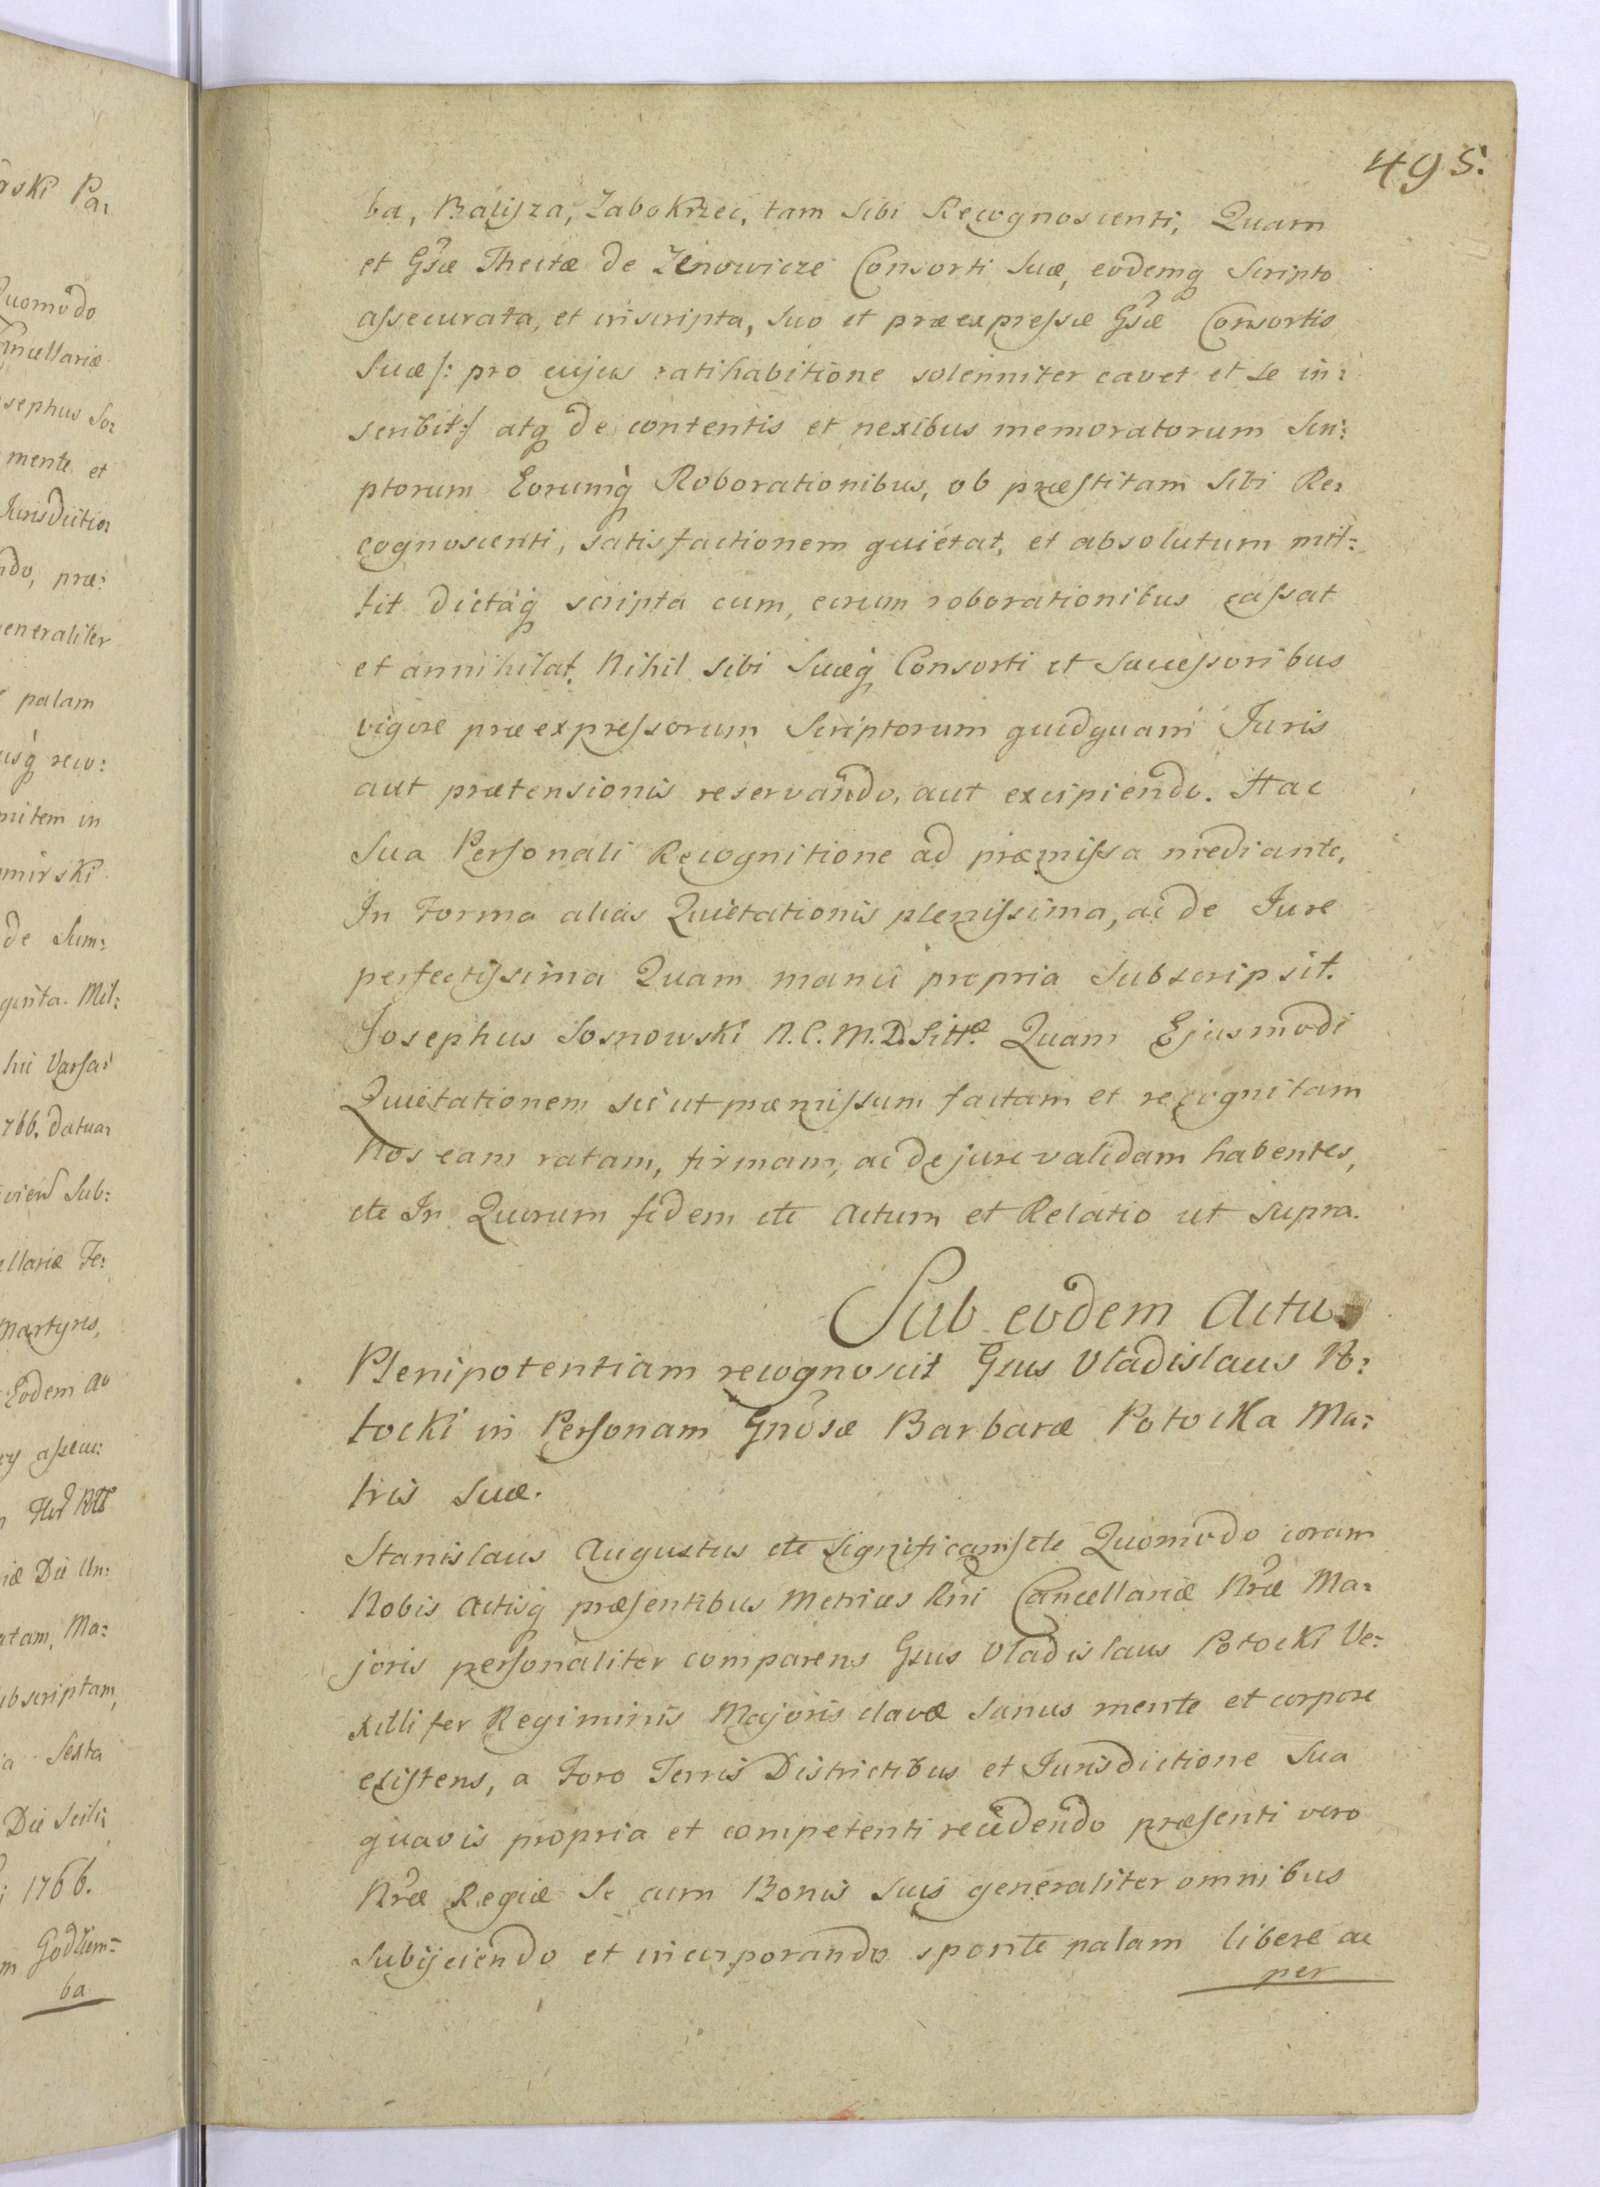 495.
ba, Balisza, Zabokrzec, tam Sibi Recognoscenti, Quam
et Gsæ Theclæ de Zenowicze Consorti Suæ, eodemq Scripto
assecurata, et inscripta, Suo et præexpressæ Gsæ Consortis
Suæ /: pro cujus ratihabitione solenniter cavet et se in:
scribit :/ atq de contentis et nexibus memoratorum Scri:
ptorum Eorumq Roborationibus, ob præstitam Sibi Re:
cognoscenti, satisfactionem quietat, et absolutum mit:
tit dictaq scripta cum, eorum roborationibus cassat
et annihilat. Nihil sibi Suæq Consorti et Successoribus
vigore præexpressorum Scriptorum quidquam Juris
aut prætensionis reservando, aut excipiendo. Hac
Sua Personali Recognitione ad præmissa mediante,
In Forma alias Quietationis plenissima, ac de Jure
perfectissima Quam manu propria Subscripsit.
Josephus Sosnowski N. C. M. D. Litt. Quam Ejusmodi
Quietationem sic ut præmissum factam et recognitam
Nos eam ratam, firmam, ac de jure validam habentes,
etc In Quorum fidem etc Actum et Relatio ut Supra.
Sub eodem Actu.
Plenipotentiam recognoscit Gsus Vladislaus Po:
tocki in Personam Gnosæ Barbaræ Potocka Ma:
tris Suæ.
Stanislaus Augustus etc Significams etc Quomodo coram
Nobis Actisq præsentibus Metrices Rni Cancellariæ Nræ Ma:
joris personaliter comparens Gsus Vladislaus Potocki Ve:
xilli fer Regiminis Majoris clavæ Sanus mente et corpore
existens, a Foro Terris Districtibus et Jurisdictione Sua
quavis propria et competenti recedendo præsenti vero
Nræ Regiæ Se cum Bonis Suis generaliter omnibus
Subijciendo et incorporando sponte palam libere ac
per
rski Pa:
Quomodo
Cancellariæ
sephus So:
mente et
Jurisdictio:
ndo, præ:
generaliter
palam
usq reco:
mitem in
mirski
de Sum:
ginta. Mil:
Varsa:
1766. datua:
Sub:
ellariæ Fe:
Martyris,
Eodem Ao
assecu:
iæ Die Un:
atam, Ma:
ubscriptam,
a Sexta
Die Scili:
i 1766.
m Godziem=
ba